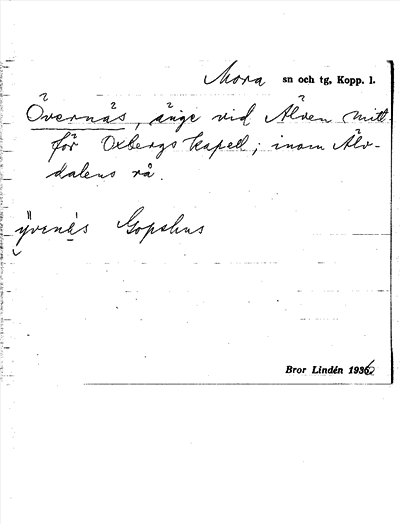 Mora sn och tg, Kopp. l.
Övernäs, änge vid Älven mitt
för Oxbergs kapell; inom Älv-
dalens rå.
ÿvenäs Gopshus
Bror Lindén 1936